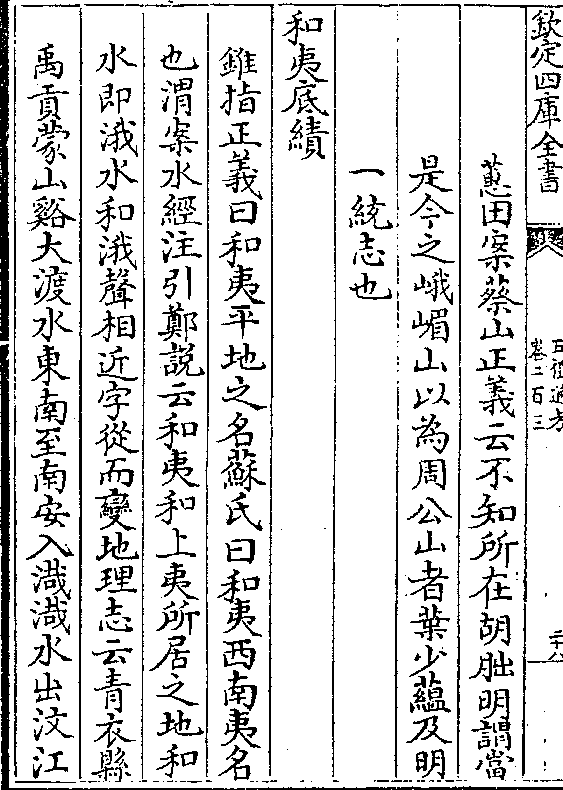 欽定四庫全書
五禮通考
卷二百三
二十八
蕙田案蔡山正義云不知所在胡朏明謂當
是今之峨嵋山以為周公山者葉少藴及明
一統志也
和夷底績
錐指正義曰和夷平地之名蘇氏曰和夷西南夷名
也渭案水經注引鄭說云和夷和上夷所居之地和
水即涐水和涐聲相近字從而變地理志云青衣縣
禹貢蒙山谿大渡水東南至南安入渽渽水出汶江